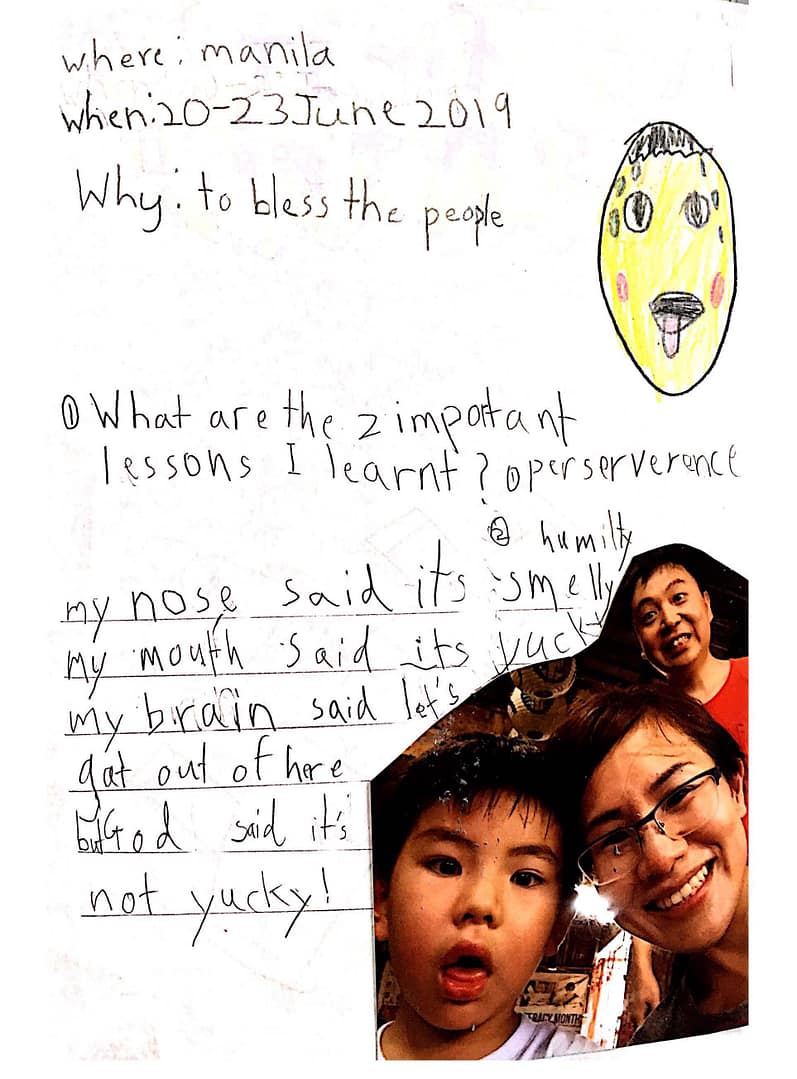 where: manila
when: 20-23 June 2019
Why: to bless the people
① What are the 2 important
lessons I learnt? ① perserverence
② humilty
my nose said its smelly
my mouth said its yucky
my brain said let's
gat out of here
but God said it's
not yucky!
TRACY MONTH